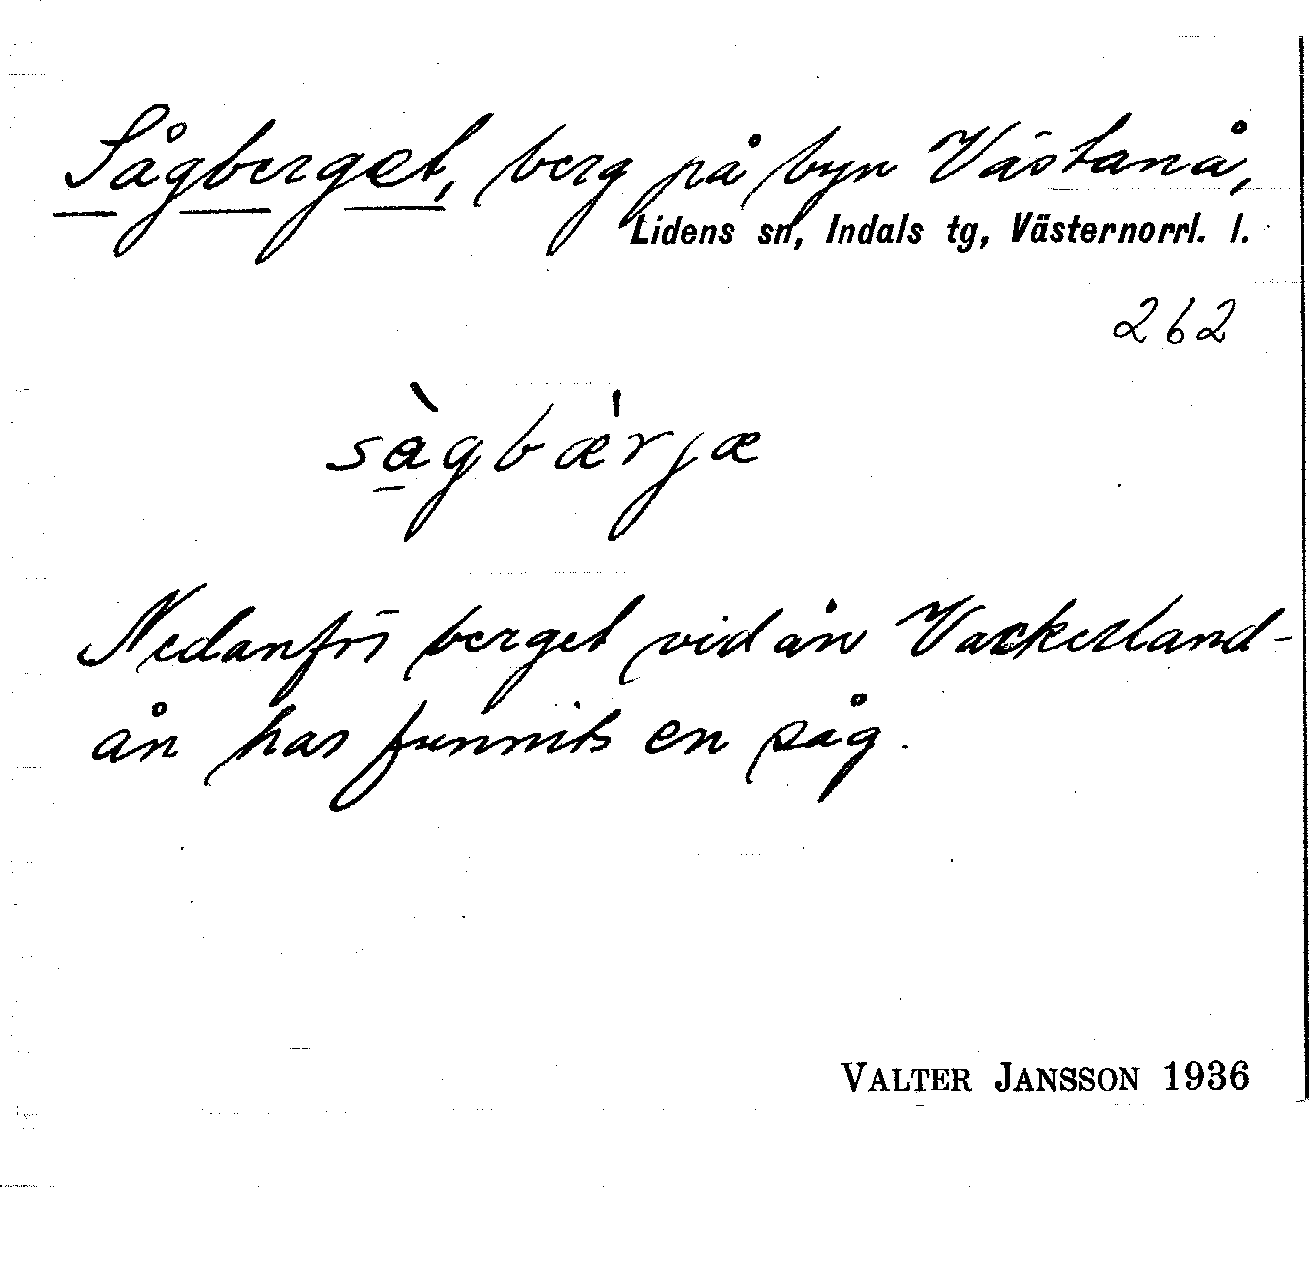 Sågberget, berg på byn Västanå,
Lidens sn, Indals tg, Västernorrl. l.
262
sàgbæ̀rjæ
Nedanför berget vid ån Vackerland-
ån har funnits en såg.
VALTER JANSSON 1936